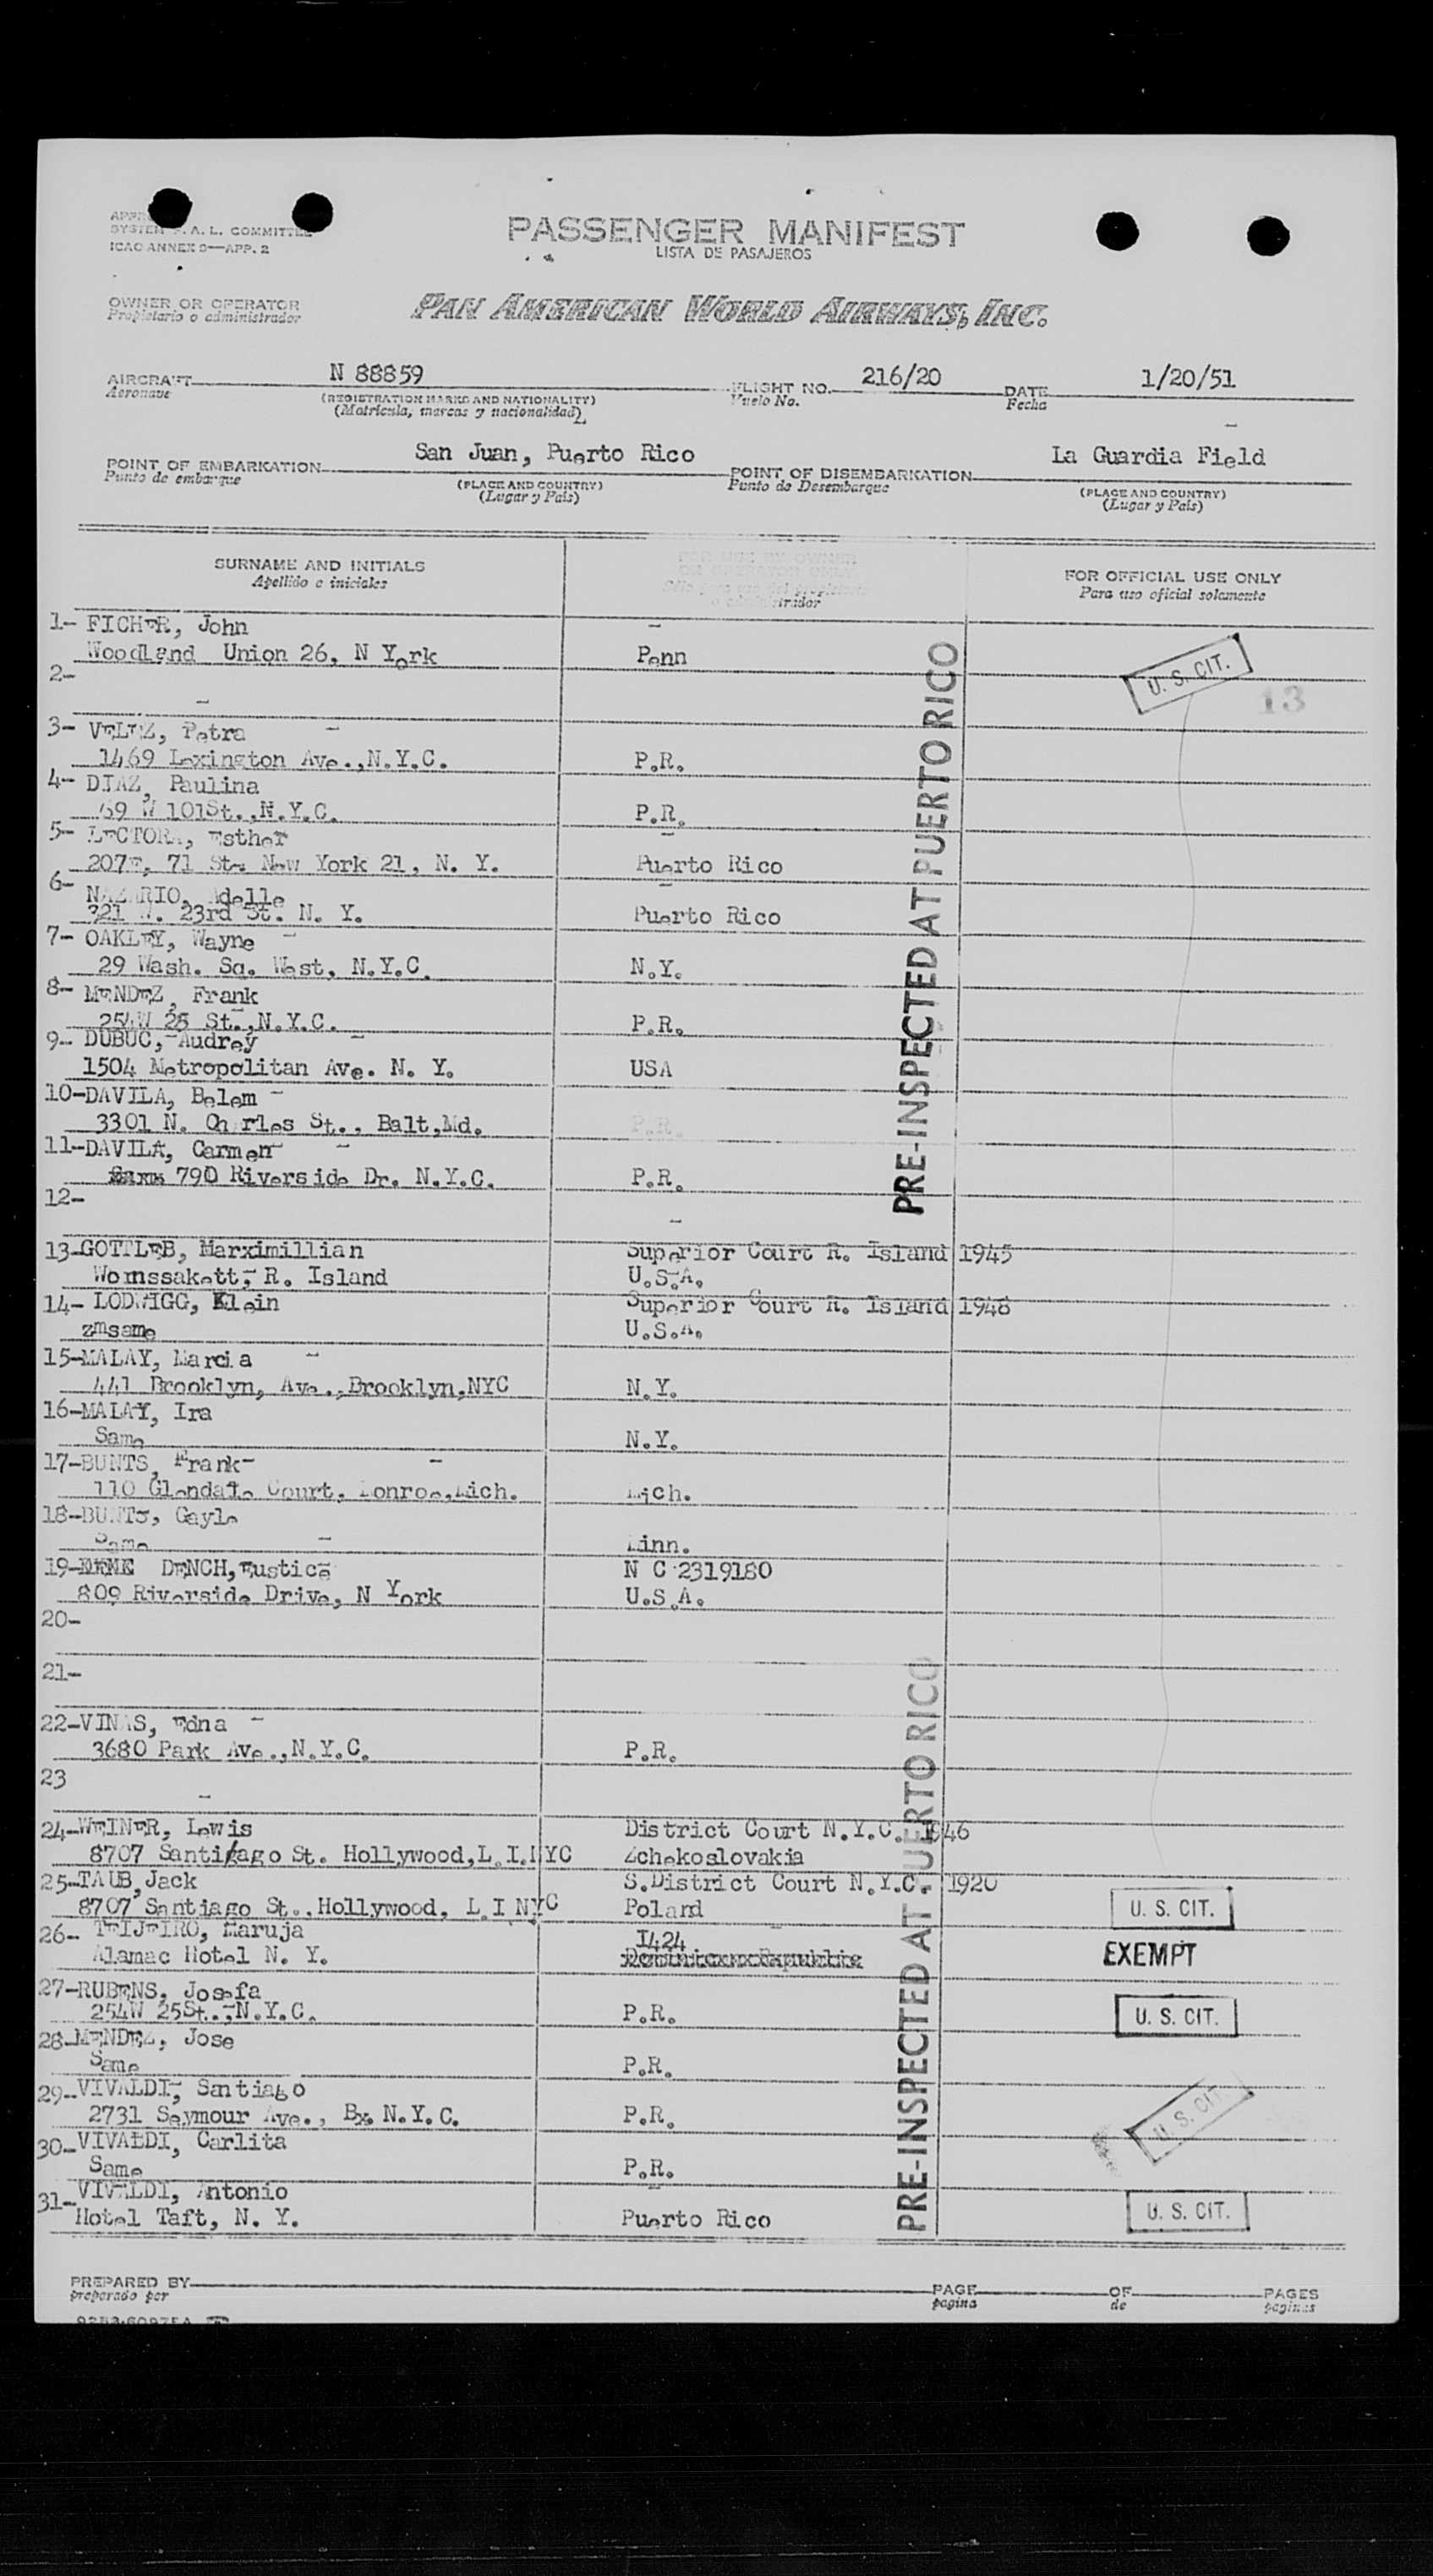 SYSTEM F. A. L. COMMITTEE
ICAO ANNEX 9—APP. 2
PASSENGER MANIFEST
LISTA DE PASAJEROS
OWNER OR OPERATOR
Propietario o administrador
PAN AMERICAN WORLD AIRWAYS, INC.
AIRCRAFT N 88859 FLIGHT NO. 216/20 DATE 1/20/51
Aeronave (REGISTRATION MARKS AND NATIONALITY) Vuelo No. Fecha
(Matricula, marcas y nacionalidad)
POINT OF EMBARKATION San Juan, Puerto Rico POINT OF DISEMBARKATION La Guardia Field
Punto de embarque (PLACE AND COUNTRY) Punto de Desembarque (PLACE AND COUNTRY)
(Lugar y País) (Lugar y País)
SURNAME AND INITIALS FOR USE BY OWNER OR OPERATOR ONLY FOR OFFICIAL USE ONLY
Apellido e iniciales Para uso oficial solamente
1- FICHER, John
Woodland Union 26, N York Penn U. S. CIT.
2- 13
3- VELEZ, Petra
1469 Lexington Ave., N.Y.C. P.R.
4- DIAZ, Paulina
69 W 101St., N.Y.C. P.R.
5- LECTORA, Esther
207E, 71 St. New York 21, N. Y. Puerto Rico
6- NAZARIO, Adelle
321 W. 23rd St. N. Y. Puerto Rico
7- OAKLEY, Wayne
29 Wash. Sq. West, N.Y.C. N.Y.
8- MENDEZ, Frank
254W 25 St., N.Y.C. P.R.
9- DUBUC, Audrey
1504 Metropolitan Ave. N. Y. USA
10-DAVILA, Belem
3301 N. Charles St., Balt,Md. P.R.
11-DAVILA, Carmen
790 Riverside Dr. N.Y.C. P.R.
PRE-INSPECTED AT PUERTO RICO
12-
13-GOTTLEB, Marximillian Superior Court R. Island 1945
Womssakett, R. Island U.S.A.
14- LODWIGG, Klein Superior Court R. Island 1948
zmsame U.S.A.
15-MALAY, Marcia
441 Brooklyn, Ave., Brooklyn,NYC N.Y.
16-MALAY, Ira
Same N.Y.
17-BUNTS, Frank
110 Glendale Court, Monroe,Mich. Mich.
18-BUNTS, Gayle
Same Minn.
19- DENCH, Eustice N C 2319180
809 Riverside Drive, N York U.S.A.
20-
21-
22-VINAS, Edna
3680 Park Ave., N.Y.C. P.R.
23
24-WEINER, Lewis District Court N.Y.C. 1646
8707 Santiago St. Hollywood,L.I.NYC Zchekoslovakia
25-TAUB, Jack S.District Court N.Y.C. 1920
8707 Santiago St., Hollywood, L.I NYC Poland U. S. CIT.
26- TEIJEIRO, Maruja I424
Alamac Hotel N. Y. Dominican Republic EXEMPT
27-RUBENS, Josefa
254W 25St., N.Y.C. P.R. U. S. CIT.
28-MENDEZ, Jose
Same P.R.
29-VIVALDI, Santiago
2731 Seymour Ave., Bx. N.Y.C. P.R. U. S. CIT.
30-VIVALDI, Carlita
Same P.R.
31-VIVALDI, Antonio
Hotel Taft, N. Y. Puerto Rico U. S. CIT.
PRE-INSPECTED AT PUERTO RICO
PREPARED BY PAGE OF PAGES
preparado por pagina de paginas